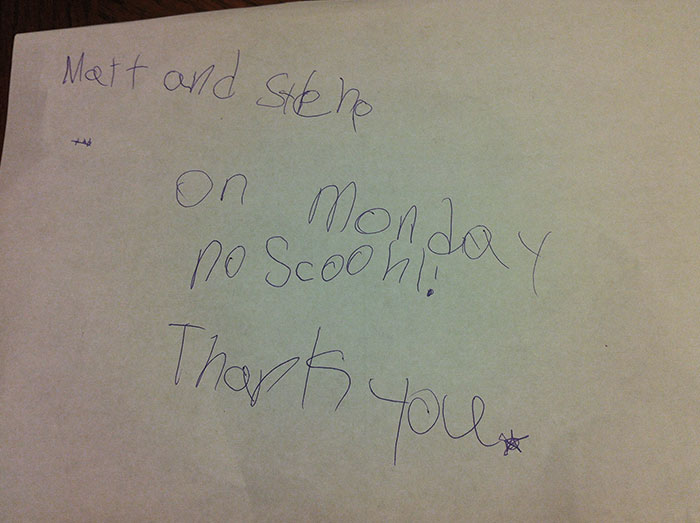 Matt and Stehp
On Monday
no Scoohl!
Thank you.